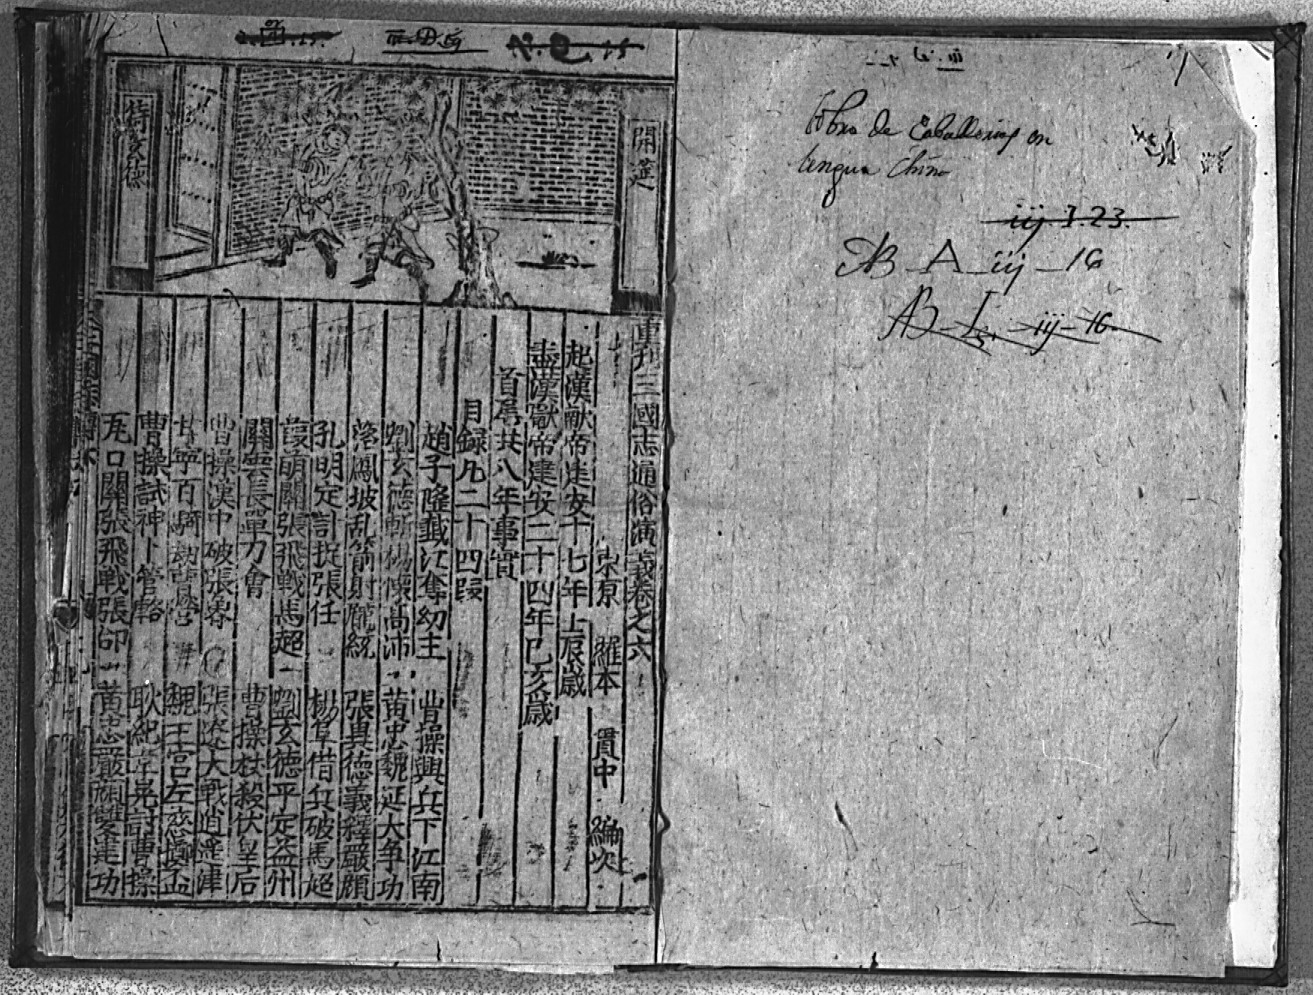 開筵
待玄德
重刊三國志通俗演義卷之六
東原 羅本 貫中 編次
起漢獻帝建安十七年壬辰歲
盡漢獻帝建安二十四年己亥歲
首尾共八年事實
目録凡二十四段
趙子隆截江奪幼主 曹操興兵下江南
劉玄德斬楊懷高沛 黃忠魏延大争功
落鳳坡乱箭射龐統 張興德義釋嚴顔
孔明定計捉張任 楊阜借兵破馬超
葭萌關張飛戰馬超 劉玄德平定益州
關雲長單刀會 曹操杖殺伏皇后
曹操漢中破張魯 張遼大戰逍遥津
甘寧百騎劫曹營 魏王宮左慈擲盃
曹操試神卜管輅 耿紀韋晃討曹操
瓦口關張飛戰張郃 黃忠嚴顔雙建功
Libro de Caballerias en
lengua China
iij.I.23.
AB A iij 16
AB I iij 16